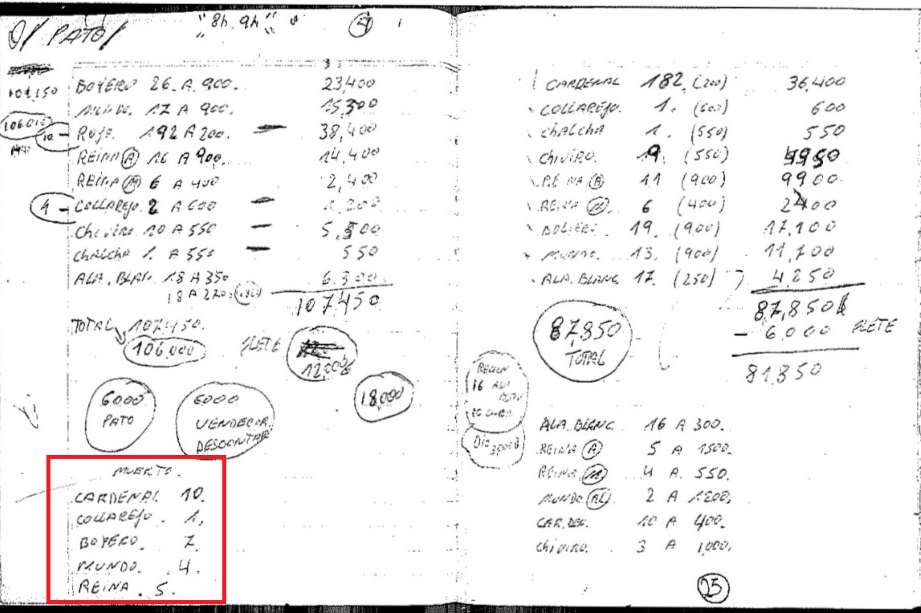 O/ PATO/ "8h 9h"
101,150
BOYERO 26. A. 900. 23,400
MUNDO. 17 A 900. 15,300
106.010
10 - ROJO. 192 A 200. 38,400
REINA (A) 16 A 900. 14,400
REINA (M) 6 A 400 2,400
4 - COLLAREJO. 2 A 600 1,200
Chiviro. 10 A 550 5,500
chalcha 1. A 550 550
ALA. BLAN. 18 A 350 6.300
18 A 270
107450
TOTAL 107,450.
106,000 FLETE 12.000
6000 PATO
6000 VENDEDOR. DESCONTAR
18,000
MUERTO.
CARDENAL 10.
COLLAREJO. 1,
BOYERO. 7.
MUNDO. 4.
REINA. 5.
CARDENAL 182. (200) 36,400
COLLAREJO. 1. (600) 600
chalcha 1. (550) 550
chiviro. 19. (550) 9950
REINA (A) 11 (900) 9900.
REINA (M). 6 (400) 2400
BOLLERO. 19. (900) 17,100
MUNDO. 13. (900) 11,700
ALA. BLANC 17. (250) 4,250
87,850
- 6.000 FLETE
81,850
87,850
TOTAL
ALA. BLANC 16 A 300.
REINA (A) 5 A 1500.
REINA (M) 4 A. 550.
MUNDO (AL) 2 A 1200,
CAR. DEC. 10 A 400.
chiviro. 3 A 1,000,
25